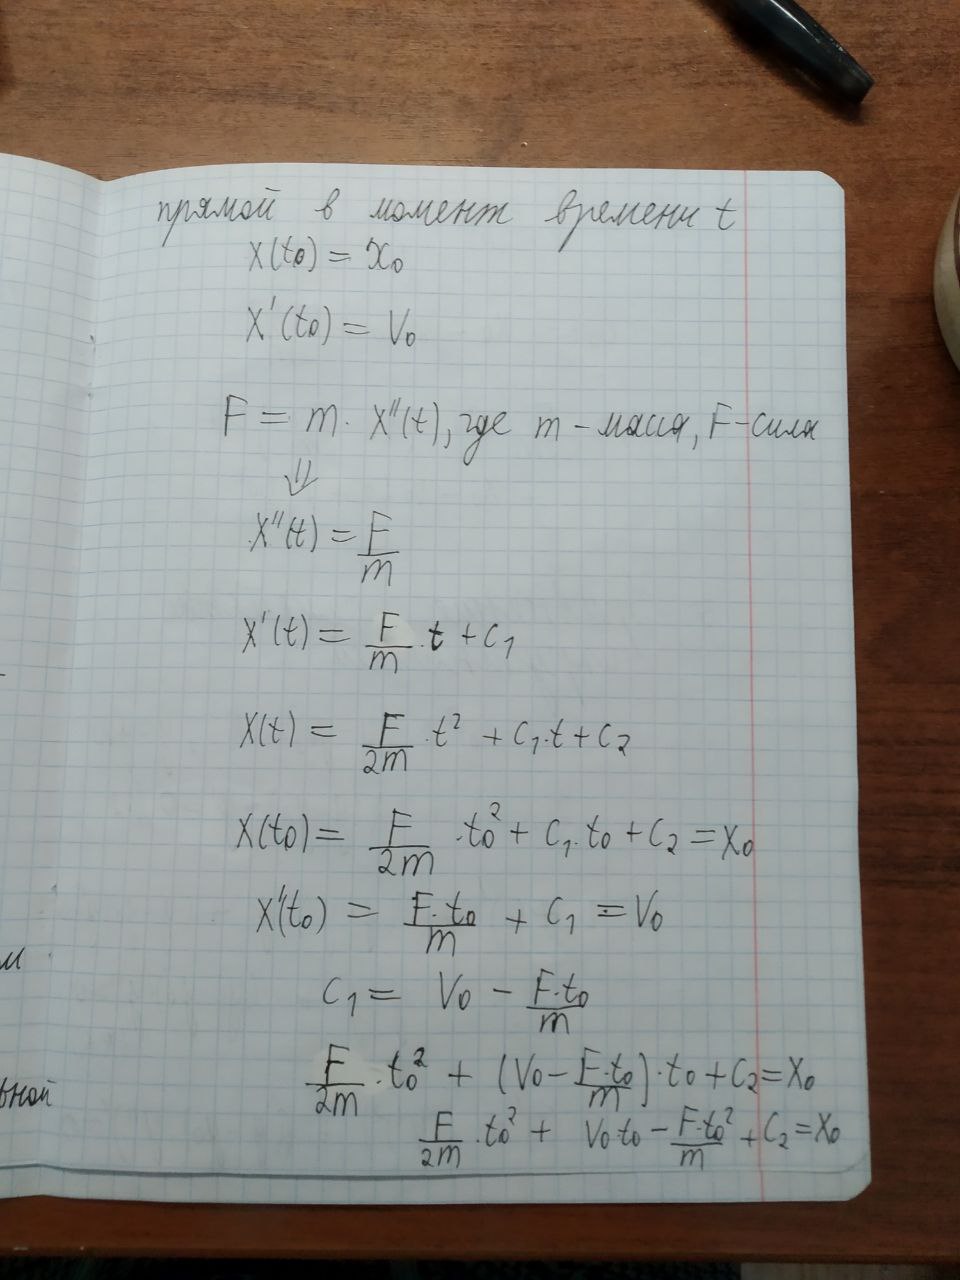 прямой в момент времени t
x(t₀) = x₀
x'(t₀) = V₀
F = m · x''(t), где m – масса, F – сила
⇓
x''(t) = F/m
x'(t) = F/m · t + C₁
x(t) = F/2m · t² + C₁·t + C₂
x(t₀) = F/2m · t₀² + C₁·t₀ + C₂ = x₀
x'(t₀) = F·t₀/m + C₁ = V₀
C₁ = V₀ – F·t₀/m
F/2m · t₀² + (V₀ – F·t₀/m) · t₀ + C₂ = x₀
F/2m · t₀² + V₀·t₀ – F·t₀²/m + C₂ = x₀